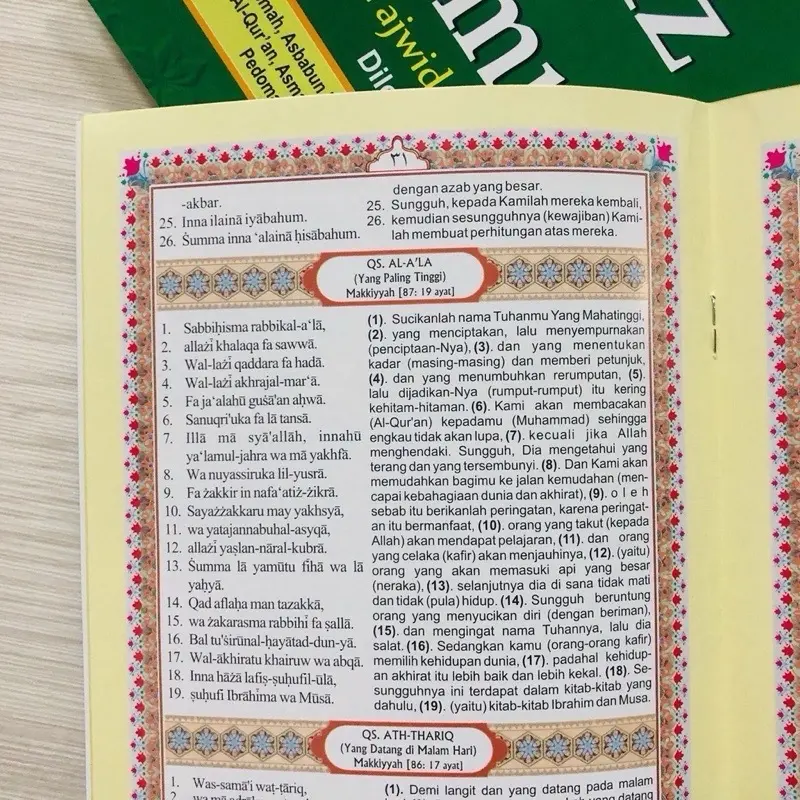 Tajwid
٣١
-akbar.
25. Inna ilainā iyābahum.
26. Ṡumma inna ‘alainā ḥisābahum.
dengan azab yang besar.
25. Sungguh, kepada Kamilah mereka kembali,
26. kemudian sesungguhnya (kewajiban) Kami-
lah membuat perhitungan atas mereka.
QS. AL-A'LA
(Yang Paling Tinggi)
Makkiyyah [87: 19 ayat]
1. Sabbiḥisma rabbikal-a‘lā,
2. allażī khalaqa fa sawwā.
3. Wal-lażī qaddara fa hadā.
4. Wal-lażī akhrajal-mar‘ā.
5. Fa ja‘alahū guṡā'an aḥwā.
6. Sanuqri'uka fa lā tansā.
7. Illā mā syā'allāh, innahū
ya‘lamul-jahra wa mā yakhfā.
8. Wa nuyassiruka lil-yusrā.
9. Fa żakkir in nafa‘atiż-żikrā.
10. Sayażżakkaru may yakhsyā,
11. wa yatajannabuhal-asyqā,
12. allażī yaṣlan-nāral-kubrā.
13. Ṡumma lā yamūtu fīhā wa lā
yaḥyā.
14. Qad aflaḥa man tazakkā,
15. wa żakarasma rabbihī fa ṣallā.
16. Bal tu'ṡirūnal-ḥayātad-dun-yā.
17. Wal-ākhiratu khairuw wa abqā.
18. Inna hāżā lafiṣ-ṣuḥufil-ūlā,
19. ṣuḥufi Ibrāhīma wa Mūsā.
(1). Sucikanlah nama Tuhanmu Yang Mahatinggi,
(2). yang menciptakan, lalu menyempurnakan
(penciptaan-Nya), (3). dan yang menentukan
kadar (masing-masing) dan memberi petunjuk,
(4). dan yang menumbuhkan rerumputan, (5).
lalu dijadikan-Nya (rumput-rumput) itu kering
kehitam-hitaman. (6). Kami akan membacakan
(Al-Qur'an) kepadamu (Muhammad) sehingga
engkau tidak akan lupa, (7). kecuali jika Allah
menghendaki. Sungguh, Dia mengetahui yang
terang dan yang tersembunyi. (8). Dan Kami akan
memudahkan bagimu ke jalan kemudahan (men-
capai kebahagiaan dunia dan akhirat), (9). o l e h
sebab itu berikanlah peringatan, karena peringat-
an itu bermanfaat, (10). orang yang takut (kepada
Allah) akan mendapat pelajaran, (11). dan orang
yang celaka (kafir) akan menjauhinya, (12). (yaitu)
orang yang akan memasuki api yang besar
(neraka), (13). selanjutnya dia di sana tidak mati
dan tidak (pula) hidup. (14). Sungguh beruntung
orang yang menyucikan diri (dengan beriman),
(15). dan mengingat nama Tuhannya, lalu dia
salat. (16). Sedangkan kamu (orang-orang kafir)
memilih kehidupan dunia, (17). padahal kehidup-
an akhirat itu lebih baik dan lebih kekal. (18). Se-
sungguhnya ini terdapat dalam kitab-kitab yang
dahulu, (19). (yaitu) kitab-kitab Ibrahim dan Musa.
QS. ATH-THARIQ
(Yang Datang di Malam Hari)
Makkiyyah [86: 17 ayat]
1. Was-samā'i waṭ-ṭāriq,
(1). Demi langit dan yang datang pada malam